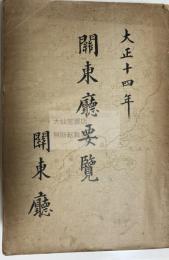 大正十四年
關東廳要覽
關東廳